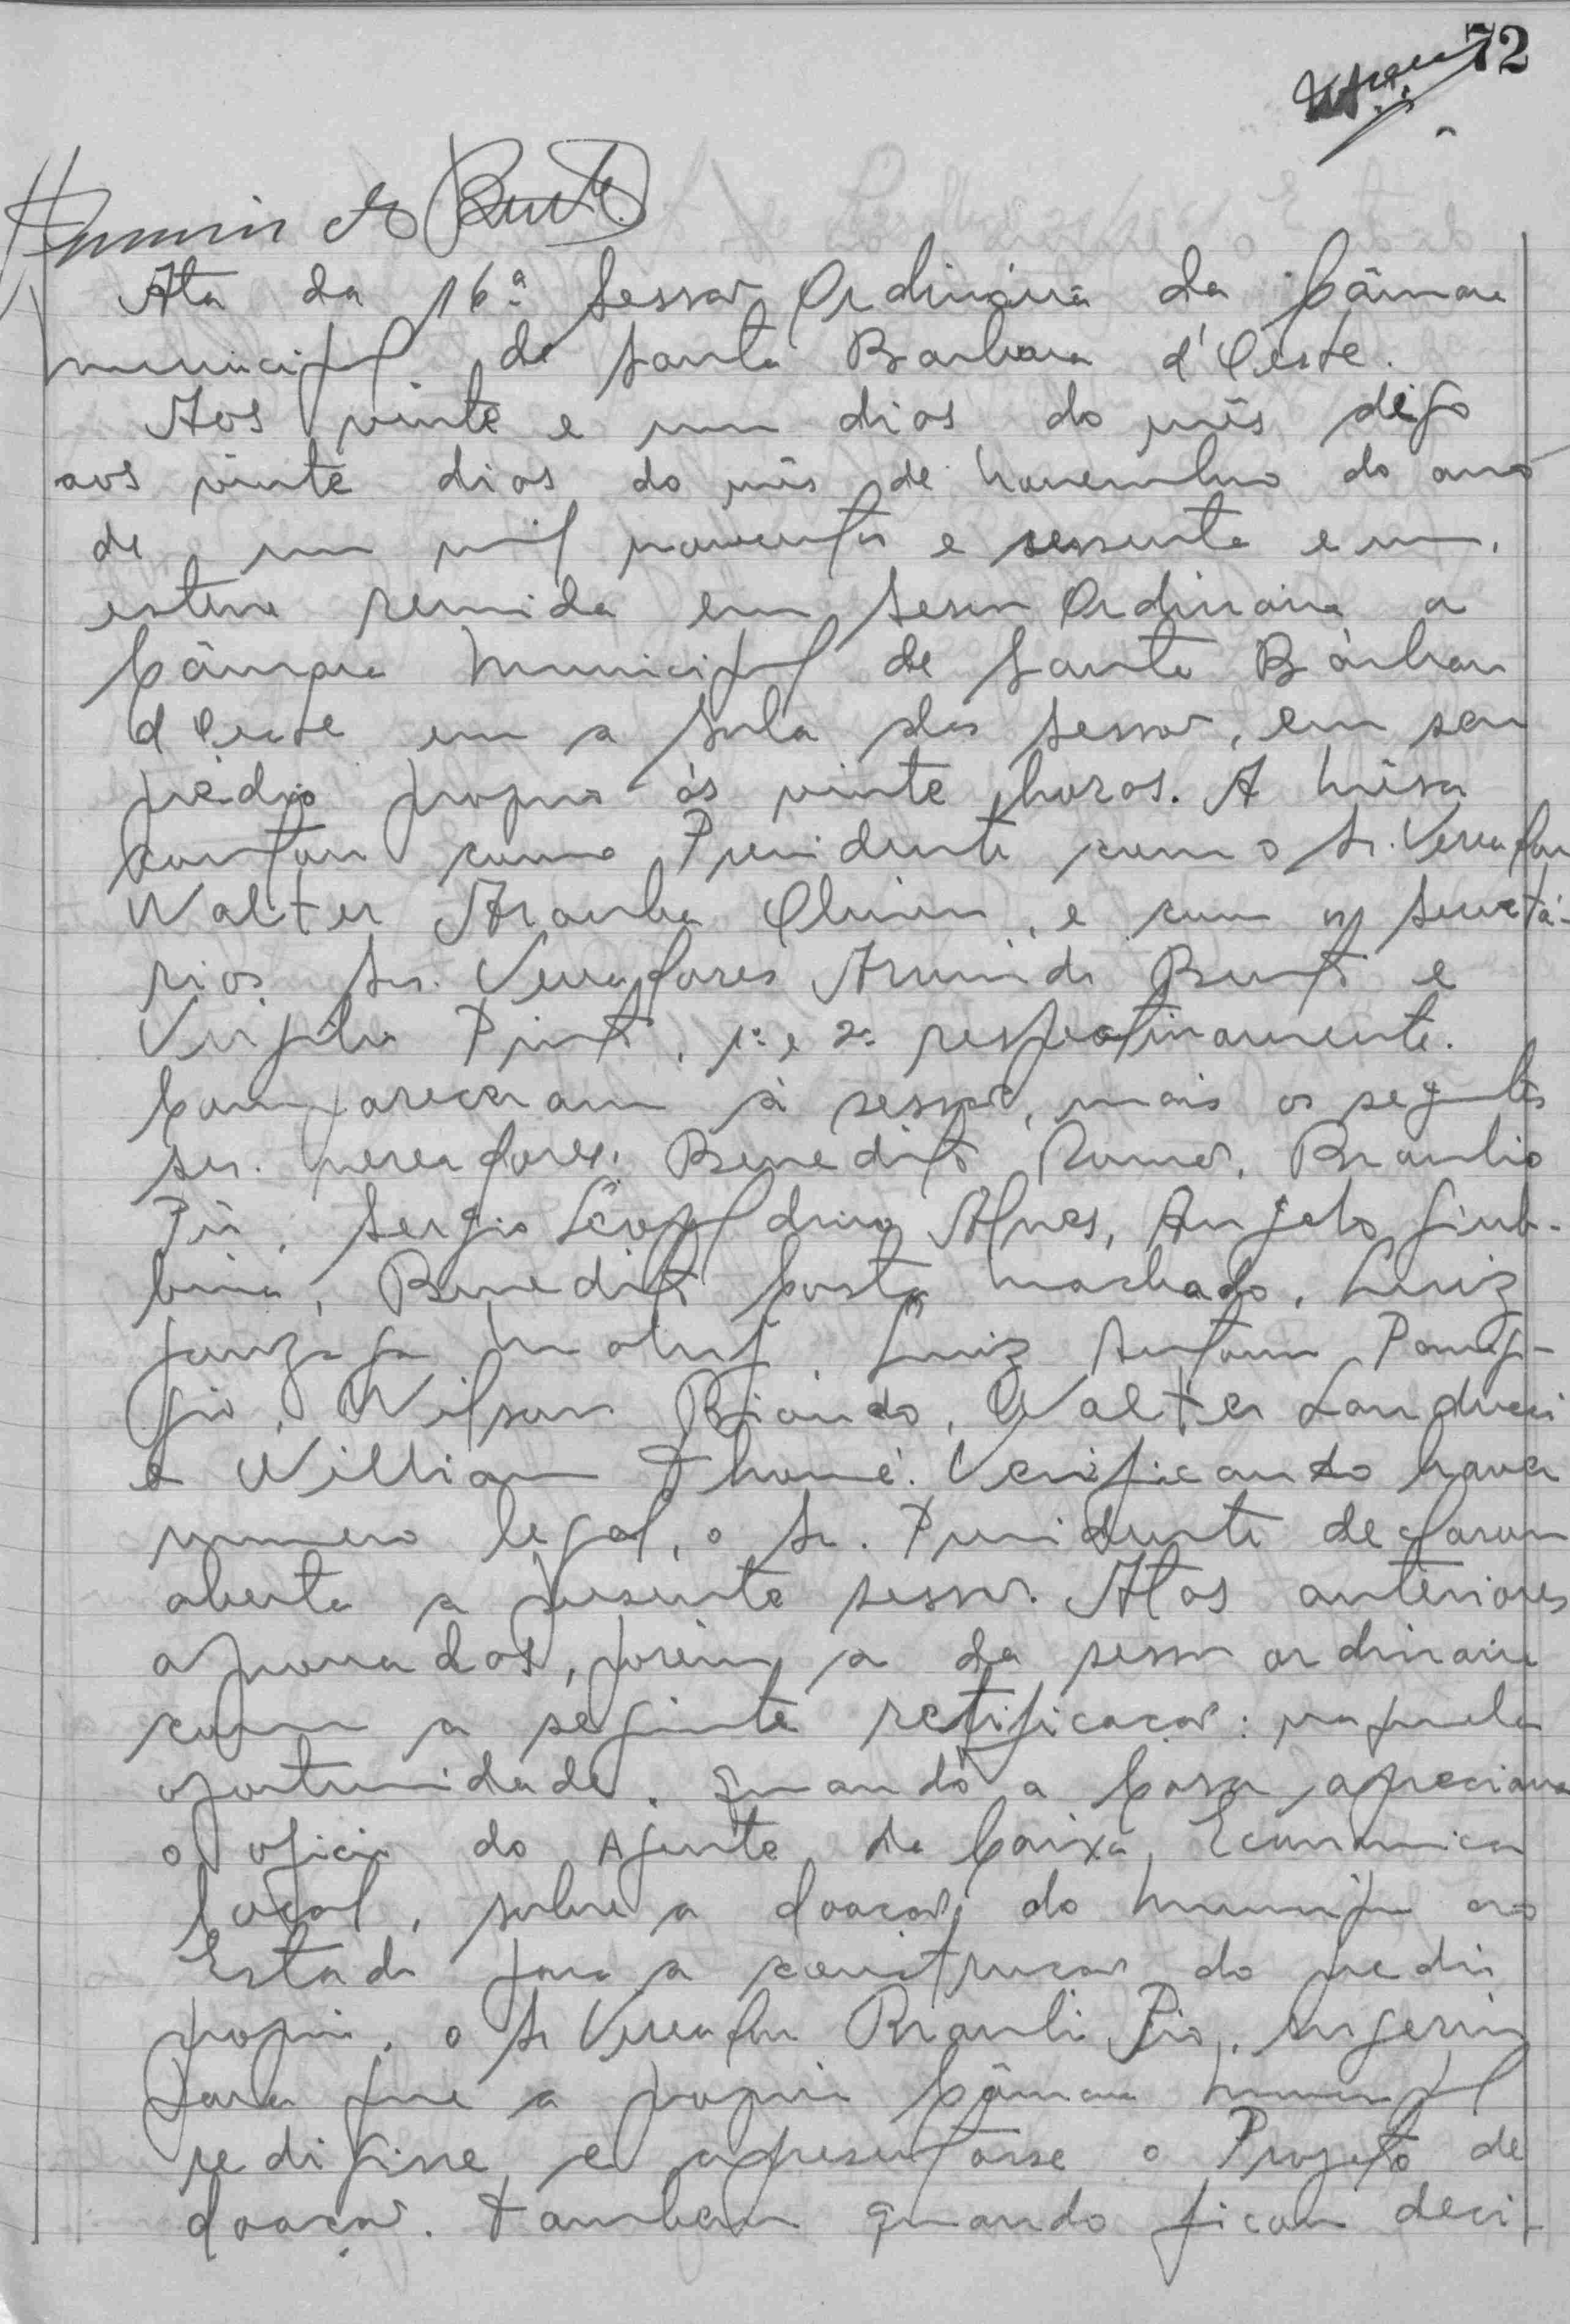 72
Ata da 16ª Sessão Ordinária da Câmara
municipal de Santa Barbara d'Oeste.
Aos vinte e um dias do mês digo
aos vinte dias do mês de novembro do ano
de um mil novecentos e sessenta e um,
esteve reunida em Sessão Ordinária a
Câmara Municipal de Santa Bárbara
d'Oeste em a sala das sessões, em seu
prédio proprio às vinte horas. A mêsa
contou como Presidente com o Sr. Vereador
Walter Aranha, e com os secretá-
rios Srs. Vereadores Armindo Bento e
Virgilio Pinto, 1º e 2º respectivamente.
Compareceram à sessão, mais os seguintes
srs. vereadores: Benedito Romão, Braulio
Pio, Sergio Leopoldino Alves, Angelo Giub-
bina, Benedito Costa Machado, Luiz
Gonzaga Maluf, Luiz Antonio Panag-
gio, Wilson Biondo, Walter Landucci
e William Thomé. Verificando haver
numero legal, o Sr. Presidente declarou
aberta a presente sessão. Atas anteriores
aprovadas, porém a da sessão ordinaria
com a seguinte retificação: naquela
oportunidade, quando a Casa apreciava
o oficio do Agente da Caixa Economica
local, sobre a doação do municipio ao
Estado para a construção do predio
proprio, o Sr Vereador Braulio Pio, sugeriu
para que a propria Câmara municipal
redigisse e apresentasse o Projeto de
doação. Tambem quando ficou deci-